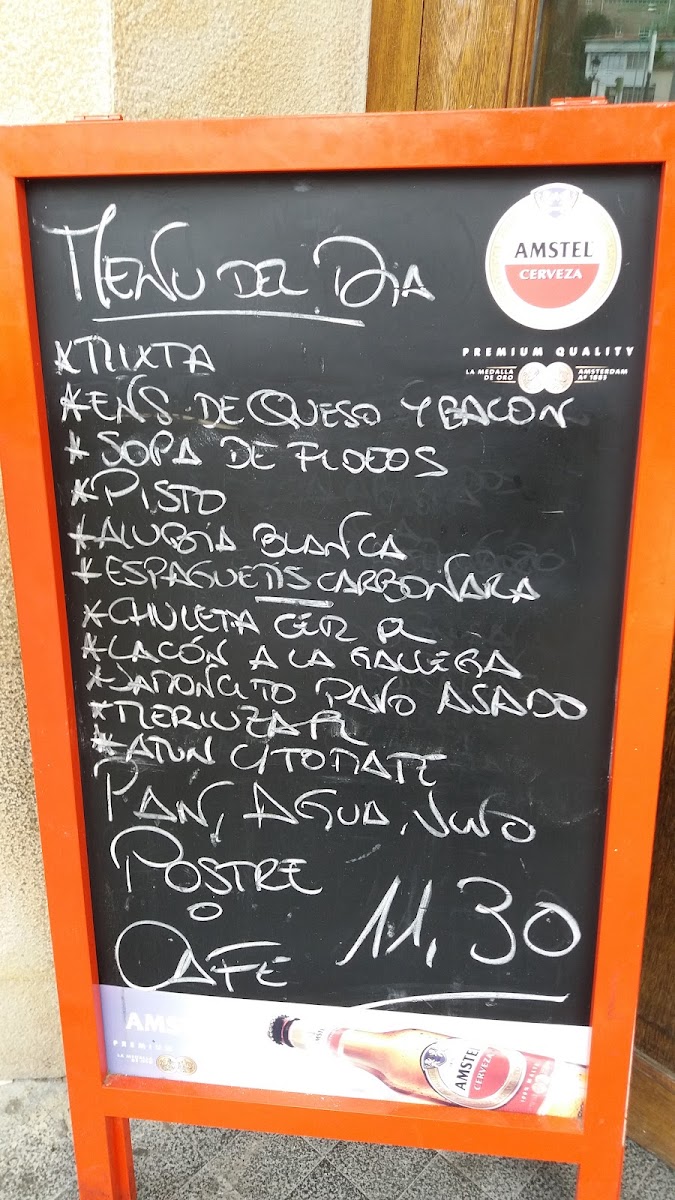 MENU DEL DIA
AMSTEL
CERVEZA
PREMIUM QUALITY
LA MEDALLA DE ORO
AMSTERDAM Aº 1883
*MIXTA
*ENS. DE QUESO Y BACON
*SOPA DE FIDEOS
*PISTO
*ALUBIA BLANCA
*ESPAGUETIS CARBONARA
*CHULETA CER PL
*LACÓN A LA GALLEGA
*JAMONCITO PAVO ASADO
*MERLUZA PL
*ATUN C/TOMATE
PAN, AGUA, VINO
POSTRE
O
CAFE 11,30
AMS
PREMIUM
AMSTEL
CERVEZA